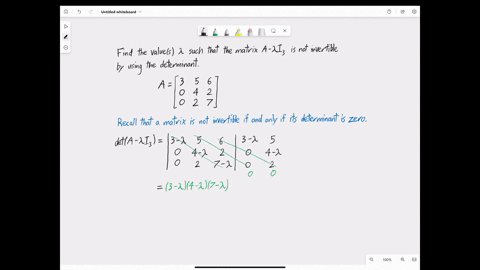 Untitled whiteboard
Find the value(s) λ such that the matrix A-λI₃ is not invertible
by using the determinant.
A = [3 5 6
0 4 2
0 2 7]
Recall that a matrix is not invertible if and only if its determinant is zero.
det(A-λI₃) = |3-λ 5 6| 3-λ 5
0 4-λ 2 0 4-λ
0 2 7-λ 0 2
0 0
= (3-λ)(4-λ)(7-λ)
100%